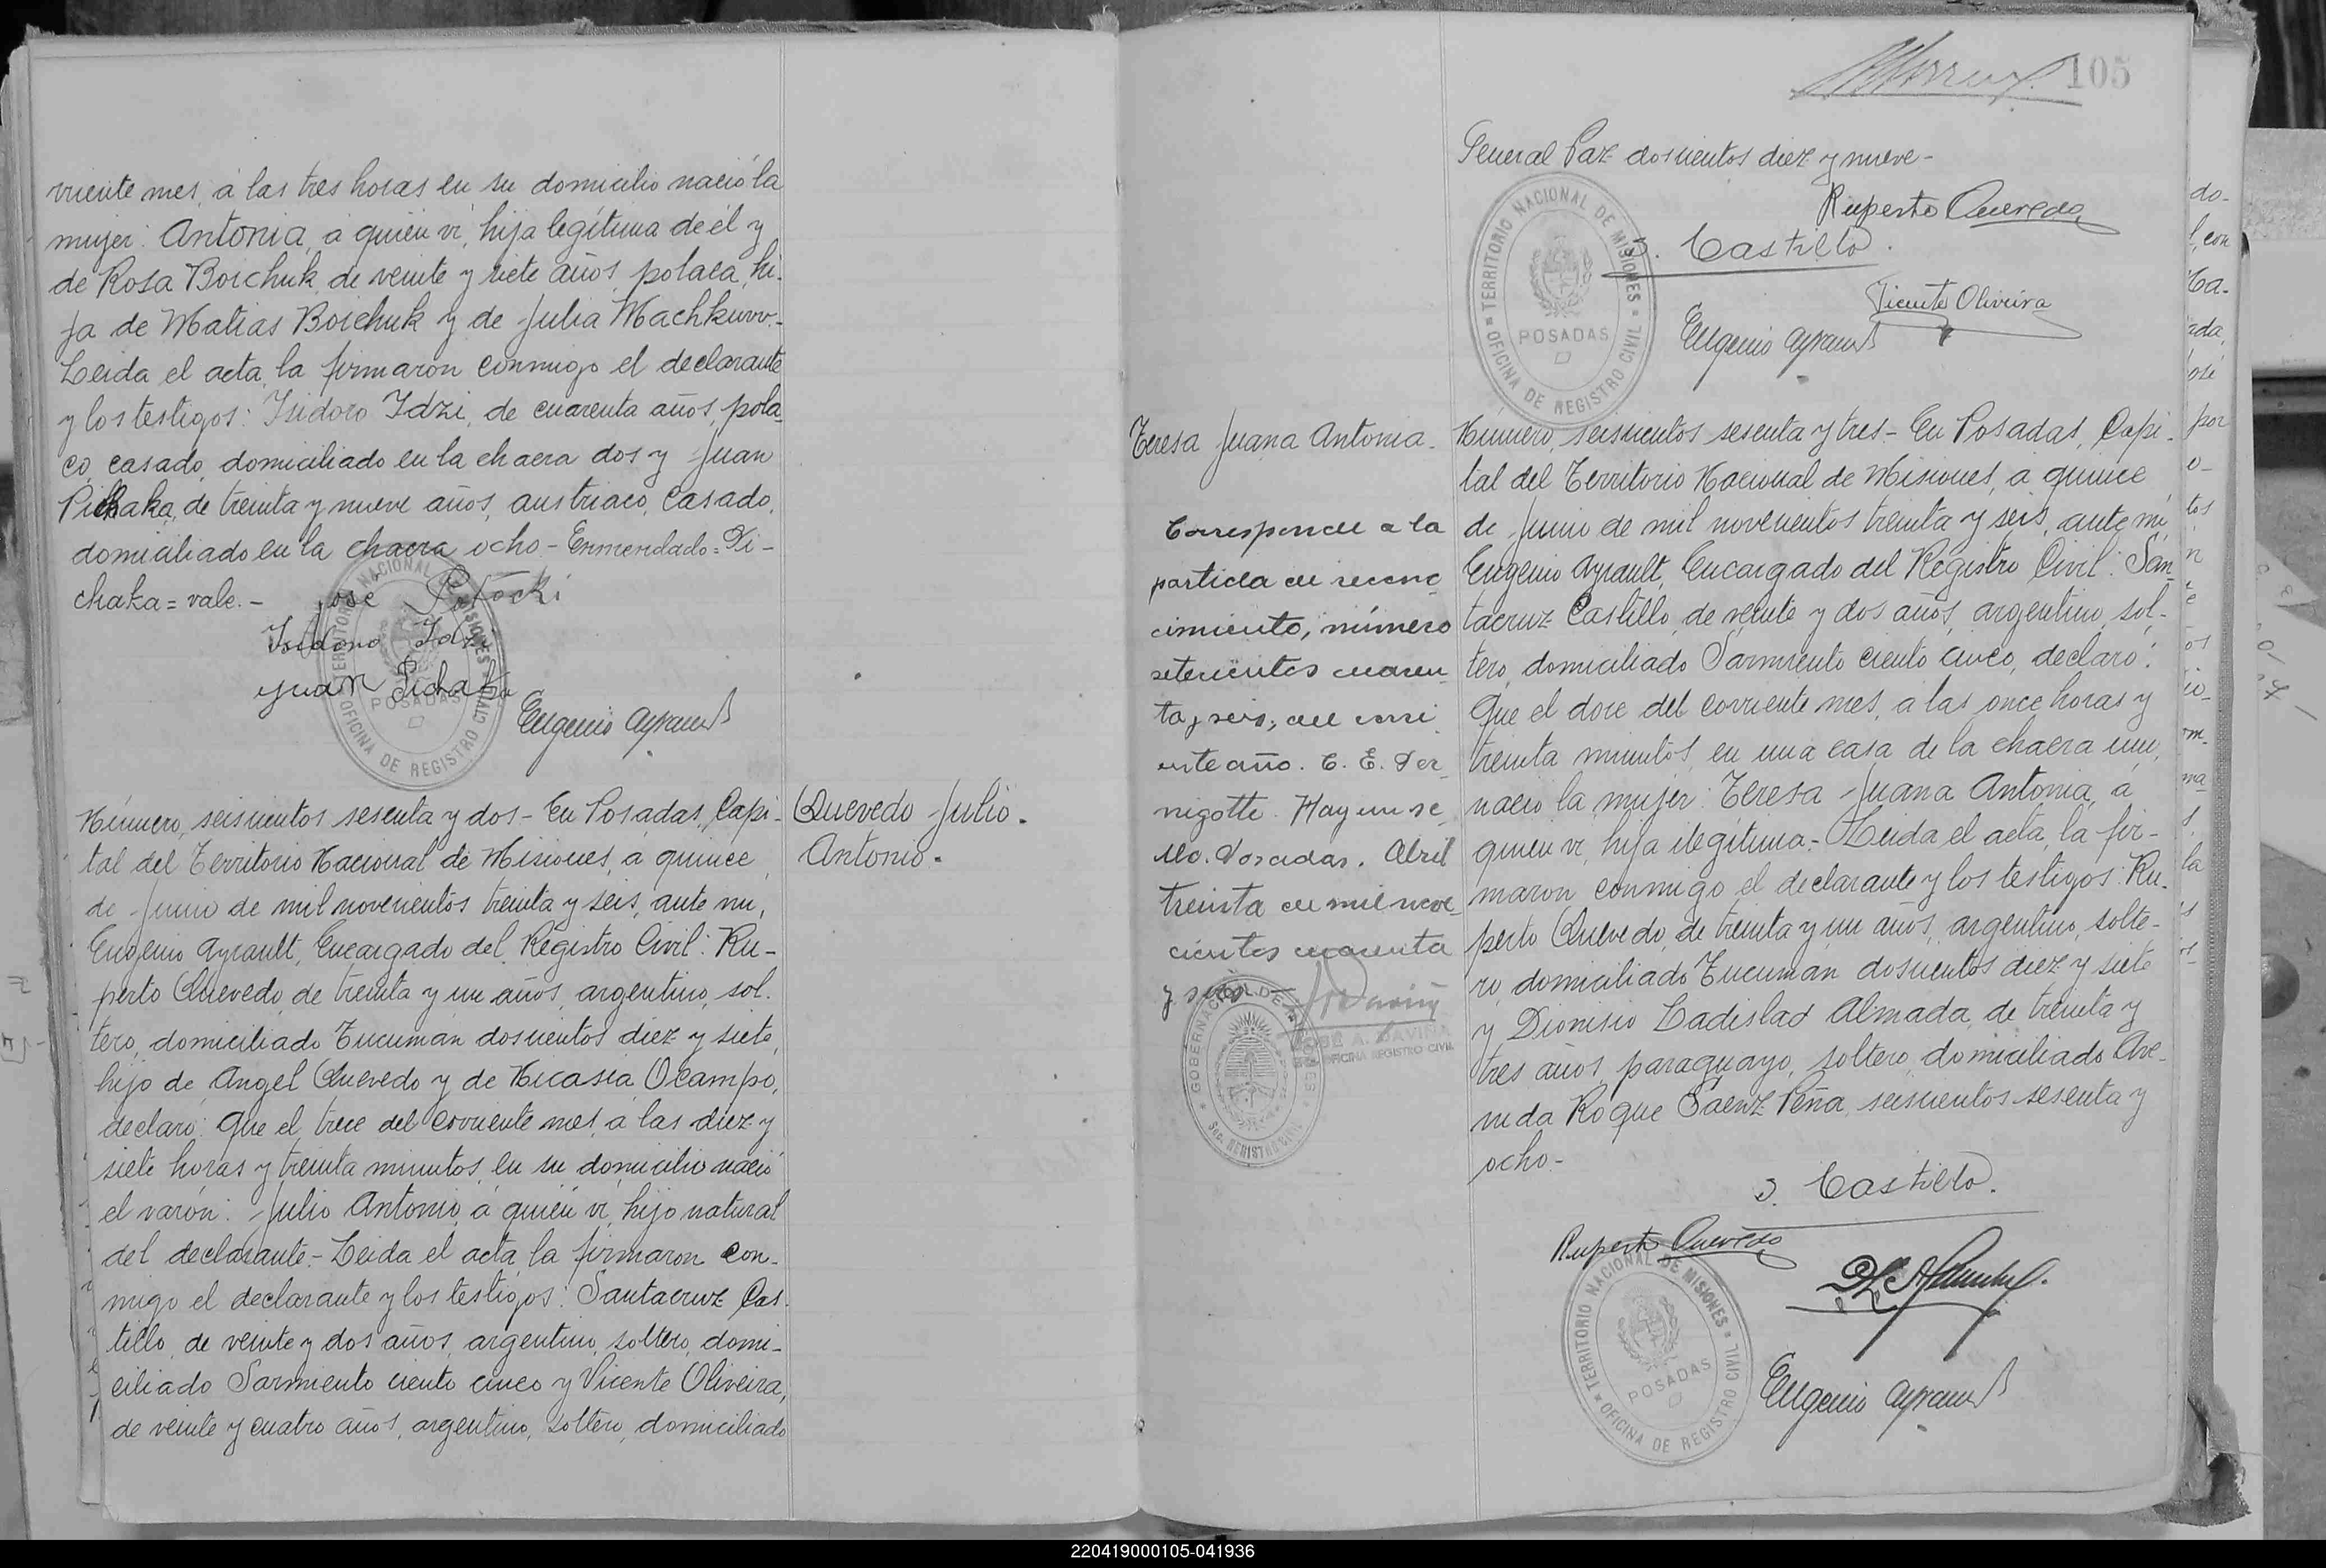 rriente mes, á las tres horas en su domicilio nació la
mujer: Antonia, á quién ví, hija legítima de él y
de Rosa Boichuk, de veinte y siete años, polaca, hi-
ja de Matias Boichuk y de Julia Machkuvv.-
Leida el acta, la firmaron conmigo el declarante
y los testigos: Isidoro Idzi, de cuarenta años, pola-
co, casado, domiciliado en la chacra dos y Juan
Pichaka, de treinta y nueve años, austriaco, casado,
domiciliado en la chacra ocho - Enmendado = Pi-
chaka = vale. -
José Potocki
Isidoro Idzi
Juan Pichaka
Eugenio Ayrault
TERRITORIO NACIONAL DE MISIONES
POSADAS
OFICINA DE REGISTRO CIVIL
Número, seiscientos sesenta y dos - En Posadas, Capi-
tal del Territorio Nacional de Misiones, a quince
de Junio de mil novecientos treinta y seis, ante mi,
Eugenio Ayrault, Encargado del Registro Civil: Ru-
perto Quevedo, de treinta y un años, argentino, sol-
tero, domiciliado Tucumán doscientos diez y siete,
hijo de Angel Quevedo y de Nicasia Ocampo,
declaró: Que el trece del corriente mes, a las diez y
siete horas y treinta minutos, en su domicilio nació
el varón: Julio Antonio, á quién ví, hijo natural
del declarante - Leida el acta, la firmaron con-
migo el declarante y los testigos: Santacruz Cas-
tillo, de veinte y dos años, argentino, soltero, domi-
ciliado Sarmiento ciento cinco y Vicente Oliveira,
de veinte y cuatro años, argentino, soltero, domiciliado
Quevedo Julio.
Antonio.
105
General Paz doscientos diez y nueve -
Ruperto Quevedo
S. Castillo.
Vicente Oliveira
Eugenio Ayrault
TERRITORIO NACIONAL DE MISIONES
POSADAS
OFICINA DE REGISTRO CIVIL
Teresa Juana Antonia.
Corresponde a la
partida de recono
cimiento, número
setecientos cuaren
ta y seis, del corri
ente año. C. E. Per
nigotte. Hay un se
llo. Posadas. Abril
treinta de mil nove
cientos cuarenta
y seis
JOSE A. DAVIÑA
OFICINA REGISTRO CIVIL
GOBERNACION DE MISIONES
Sec. REGISTRO CIVIL
Número, seiscientos sesenta y tres - En Posadas, Capi-
tal del Territorio Nacional de Misiones, a quince
de Junio de mil novecientos treinta y seis, ante mi,
Eugenio Ayrault, Encargado del Registro Civil: San-
tacruz Castillo, de veinte y dos años, argentino, sol-
tero, domiciliado Sarmiento ciento cinco, declaró:
Que el doce del corriente mes, a las once horas y
treinta minutos, en una casa de la chacra uno,
nació la mujer: Teresa Juana Antonia, á
quien ví, hija ilegítima - Leida el acta, la fir-
maron conmigo el declarante y los testigos: Ru-
perto Quevedo, de treinta y un años, argentino, solte-
ro, domiciliado Tucumán doscientos diez y siete
y Dionisio Ladislad Almada, de treinta y
tres años, paraguayo, soltero, domiciliado Ave-
nida Roque Sáenz Peña, seiscientos sesenta y
ocho -
S. Castillo.
Ruperto Quevedo
Eugenio Ayrault
TERRITORIO NACIONAL DE MISIONES
POSADAS
OFICINA DE REGISTRO CIVIL
220419000105-041936